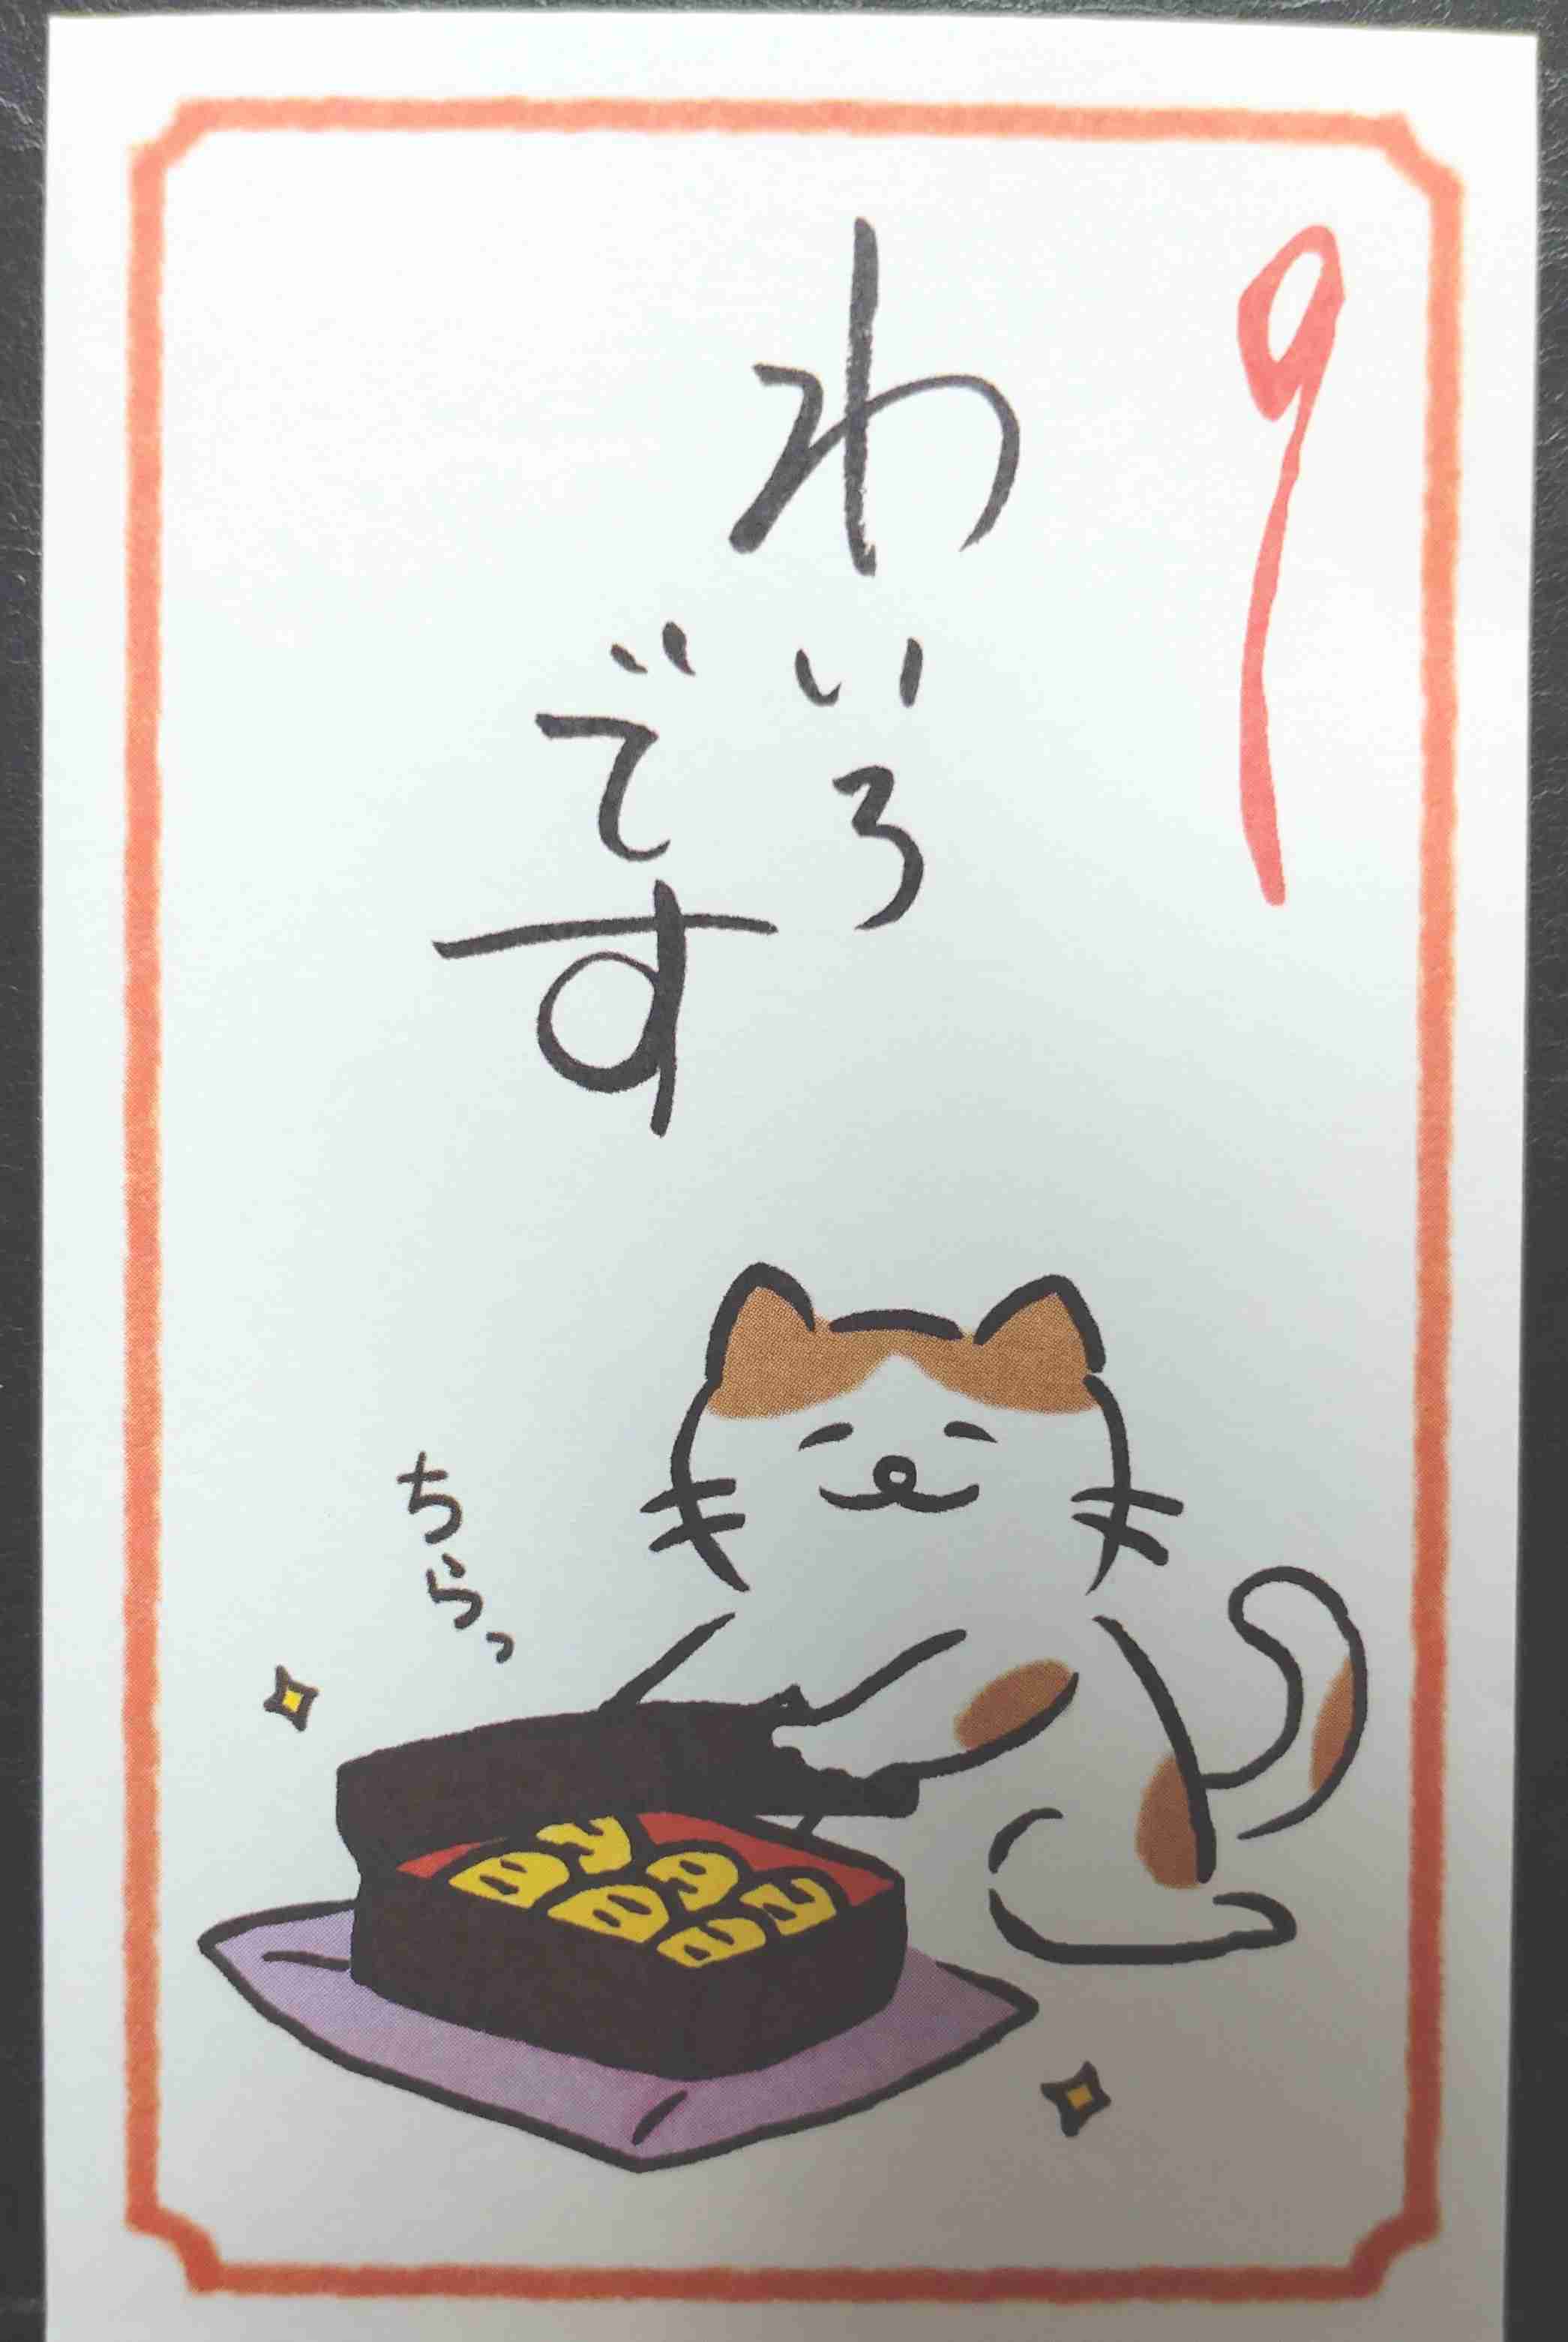 9
わいろ
です
ちらっ